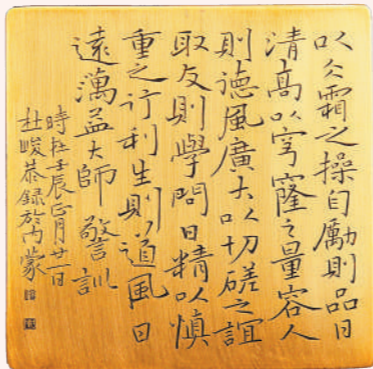 以仌霜之操自勵則品日
清高以穹窿之量容人
則德風廣大以切磋之誼
取友則學問日精以慎
重之行利生則道風日
遠蕅益大師警訓
時在壬辰正月廿日
杜峻恭録於內蒙